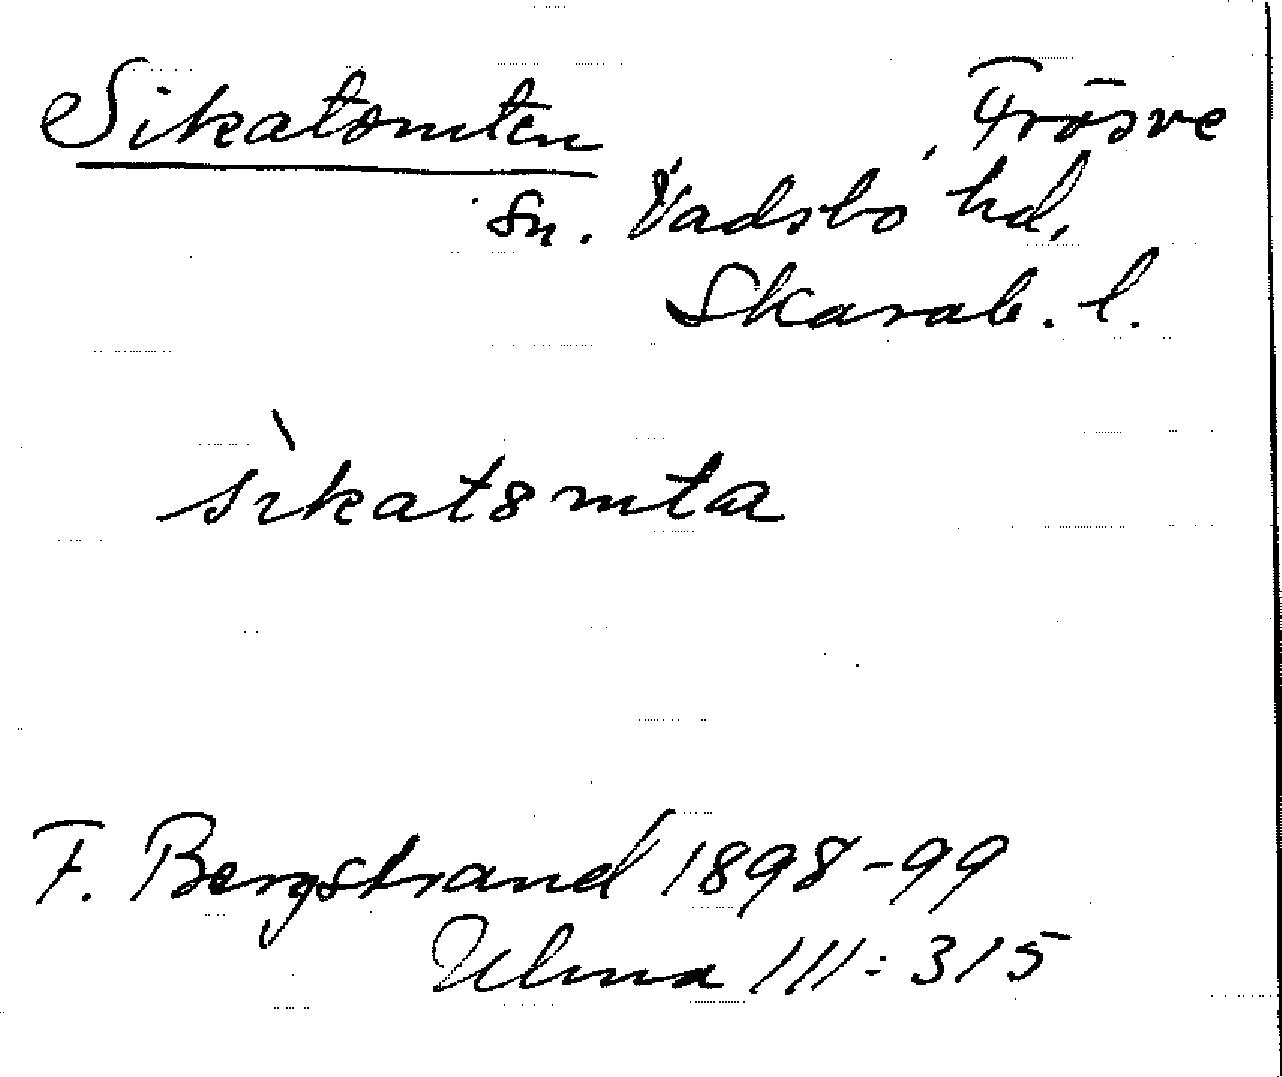 Sikatomten Frösve
sn. Vadsbo hd,
Skarab. l.
sìkat8mta
F. Bergstrand 1898-99
Ulma 111:315